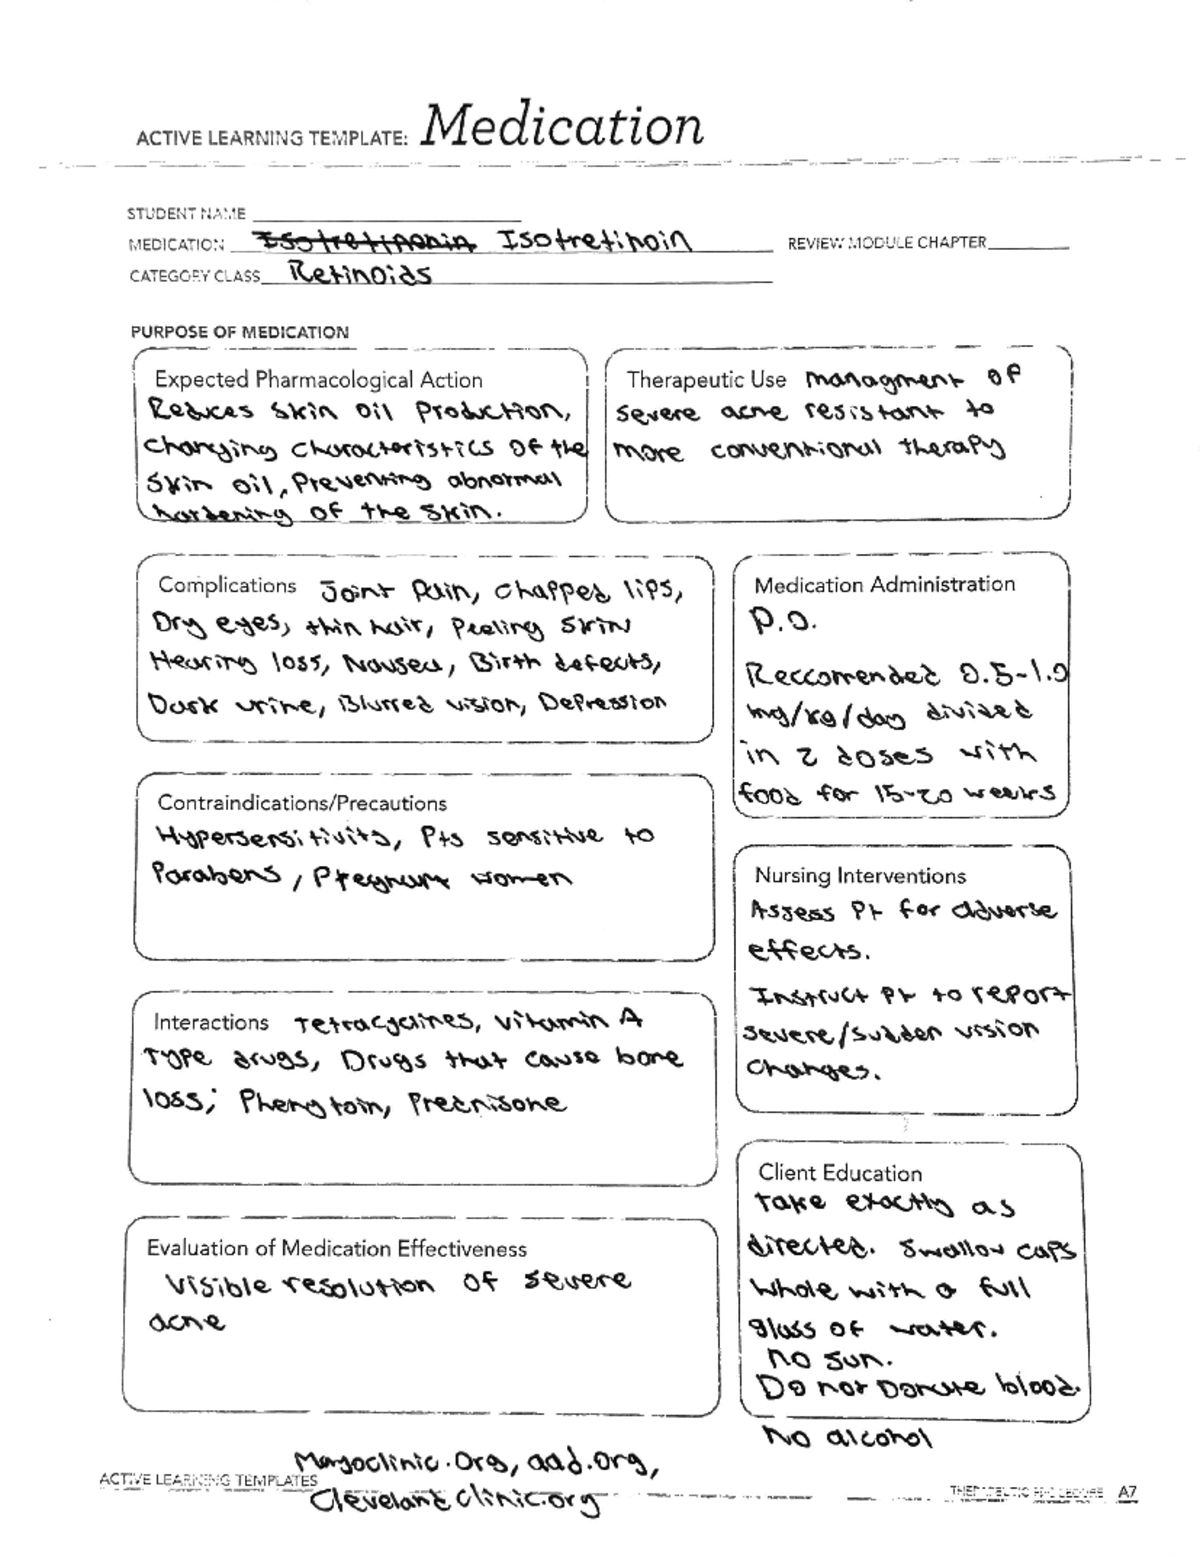 ACTIVE LEARNING TEMPLATE: Medication
STUDENT NAME
MEDICATION Isotretinonin Isotretinoin REVIEW MODULE CHAPTER
CATEGORY CLASS Retinoids
PURPOSE OF MEDICATION
Expected Pharmacological Action
Reduces skin oil production,
changing characteristics of the
skin oil, preventing abnormal
hardening of the skin.
Therapeutic Use managment of
severe acne resistant to
more conventional therapy
Complications Joint pain, chapped lips,
Dry eyes, thin hair, Peeling skin
Hearing loss, Nausea, Birth defects,
Dark urine, Blurred vision, Depression
Medication Administration
P.O.
Reccomended 0.5-1.0
mg/kg/day divided
in 2 doses with
food for 15-20 weeks
Contraindications/Precautions
Hypersensitivity, Pts sensitive to
Parabens, Pregnant women
Nursing Interventions
Assess Pt for adverse
effects.
Instruct Pt to report
severe/sudden vision
changes.
Interactions Tetracyclines, vitamin A
Type drugs, Drugs that cause bone
loss; Phenytoin, Prednisone
Client Education
Take exactly as
directed. Swallow caps
whole with a full
glass of water.
No sun.
Do not Donate blood.
No alcohol
Evaluation of Medication Effectiveness
Visible resolution of severe
acne
Mayoclinic.org, aad.org,
Clevelandclinic.org
ACTIVE LEARNING TEMPLATES
THERAPEUTIC PROCEDURE A7